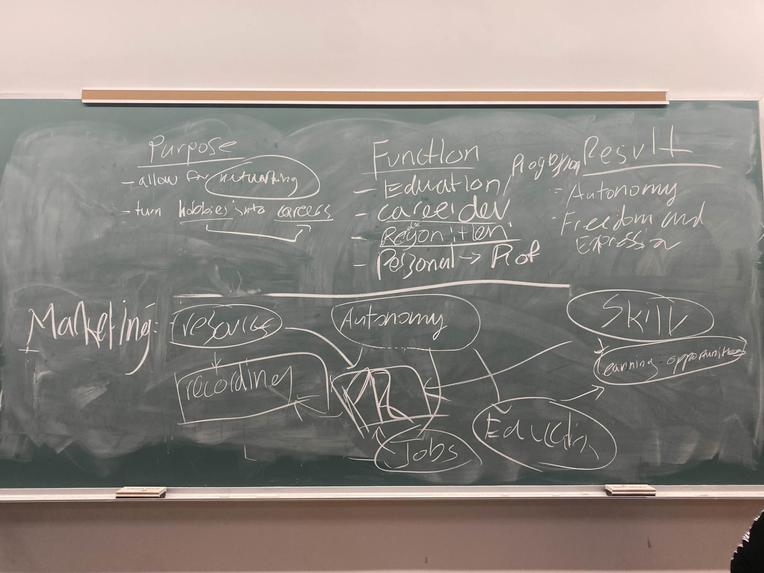 Purpose
- allow for networking
- turn hobbies into careers
Function
- Eduation/Progression
- career dev
- Recognition
- Personal → Prof
Result
- Autonomy
- Freedom and
Expression
Marketing:
resources
recording
Autonomy
PR
Jobs
Education
Skill
learning opportunities